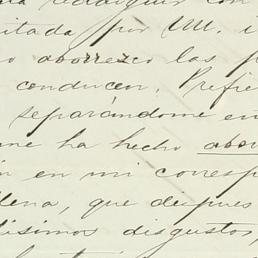 redarguir con
itada por UU. i
o aborrezco las p
conducen. Prefie
separándome en
me ha hecho abor
en mi corresp
lena, que despues
ísimos disgustos,